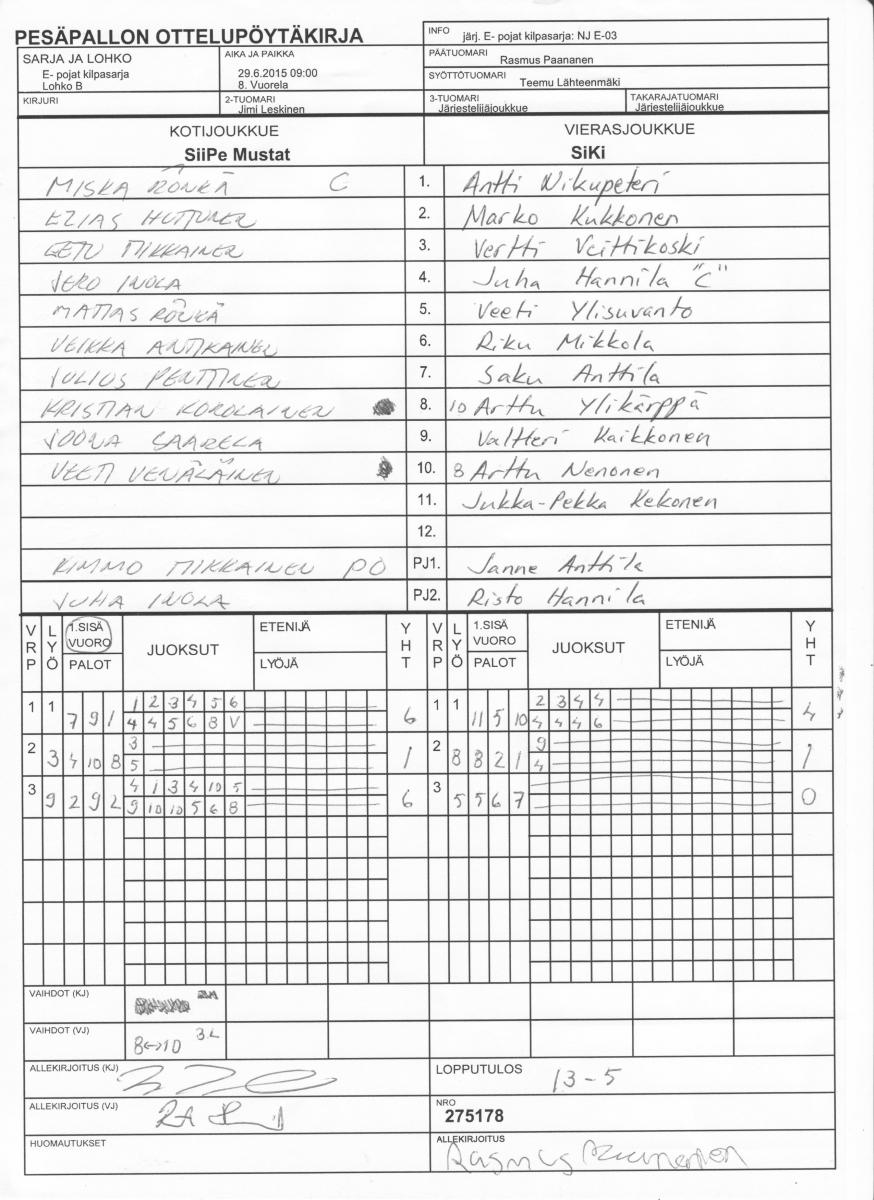 PESÄPALLON OTTELUPÖYTÄKIRJA
INFO järj. E- pojat kilpasarja: NJ E-03
SARJA JA LOHKO
E- pojat kilpasarja
Lohko B
AIKA JA PAIKKA
29.6.2015 09:00
8. Vuorela
PÄÄTUOMARI
Rasmus Paananen
SYÖTTÖTUOMARI Teemu Lähteenmäki
KIRJURI
2-TUOMARI
Jimi Leskinen
3-TUOMARI
Järjestelijäjoukkue
TAKARAJATUOMARI
Järjestelijäjoukkue
KOTIJOUKKUE
SiiPe Mustat
VIERASJOUKKUE
SiKi
MISKA RÖNKÄ C 1. Antti Nikupeteri
ELIAS HUTTUNEN 2. Marko Kukkonen
EETU MIKKAINEN 3. Vertti Veittikoski
JERO INOLA 4. Juha Hannila "C"
MATIAS RÖNKÄ 5. Veeti Ylisuvanto
VEIKKA ANTIKAINEN 6. Riku Mikkola
JULIUS PENTTINEN 7. Saku Anttila
KRISTIAN KOROLAINEN 8. 10 Arttu Ylikärppä
JOONA SAARELA 9. Valtteri Kaikkonen
VEETI VENÄLÄINEN 10. 8 Arttu Nenonen
11. Jukka-Pekka Kekonen
12.
KIMMO MIKKAINEN PJ1. Janne Anttila
JUHA INOLA PJ2. Risto Hannila
VRP LYÖ 1.SISÄ VUORO PALOT JUOKSUT ETENIJÄ LYÖJÄ YHT VRP LYÖ 1.SISÄ VUORO PALOT JUOKSUT ETENIJÄ LYÖJÄ YHT
1 1 7 9 1 1 2 3 4 5 6 6 1 1 11 5 10 2 3 4 4 4
4 4 5 6 8 V 4 4 4 6
2 3 4 10 8 3 1 2 8 8 2 1 9 1
5 4
3 9 2 9 2 4 1 3 4 10 5 6 3 5 5 6 7 0
9 10 10 5 6 8
VAIHDOT (KJ)
VAIHDOT (VJ) 8↔10 3.L
ALLEKIRJOITUS (KJ)
LOPPUTULOS 13-5
ALLEKIRJOITUS (VJ)
NRO
275178
HUOMAUTUKSET
ALLEKIRJOITUS
Rasmus Paananen